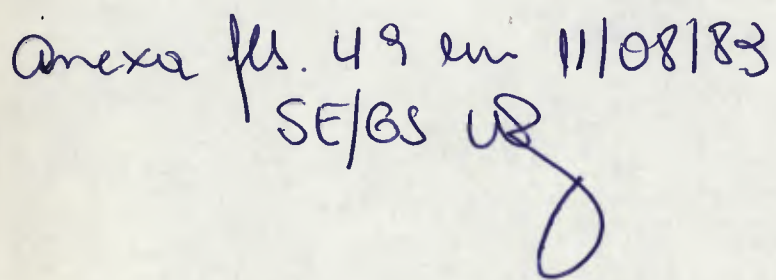 Anexa fls. 49 em 11/08/83
SE/GS